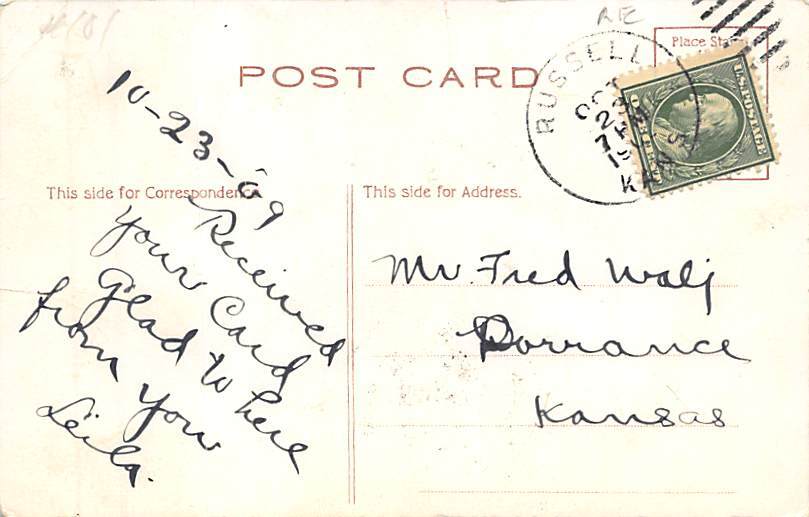 POST CARD
Place Stamp
RUSSELL
OCT
23
7 AM
KANS.
U.S. POSTAGE
10-23-'09
This side for Correspondence.
Received
Your Card
Glad to here
from you
Leila.
This side for Address.
Mr. Fred Walj
Dorrance
Kansas